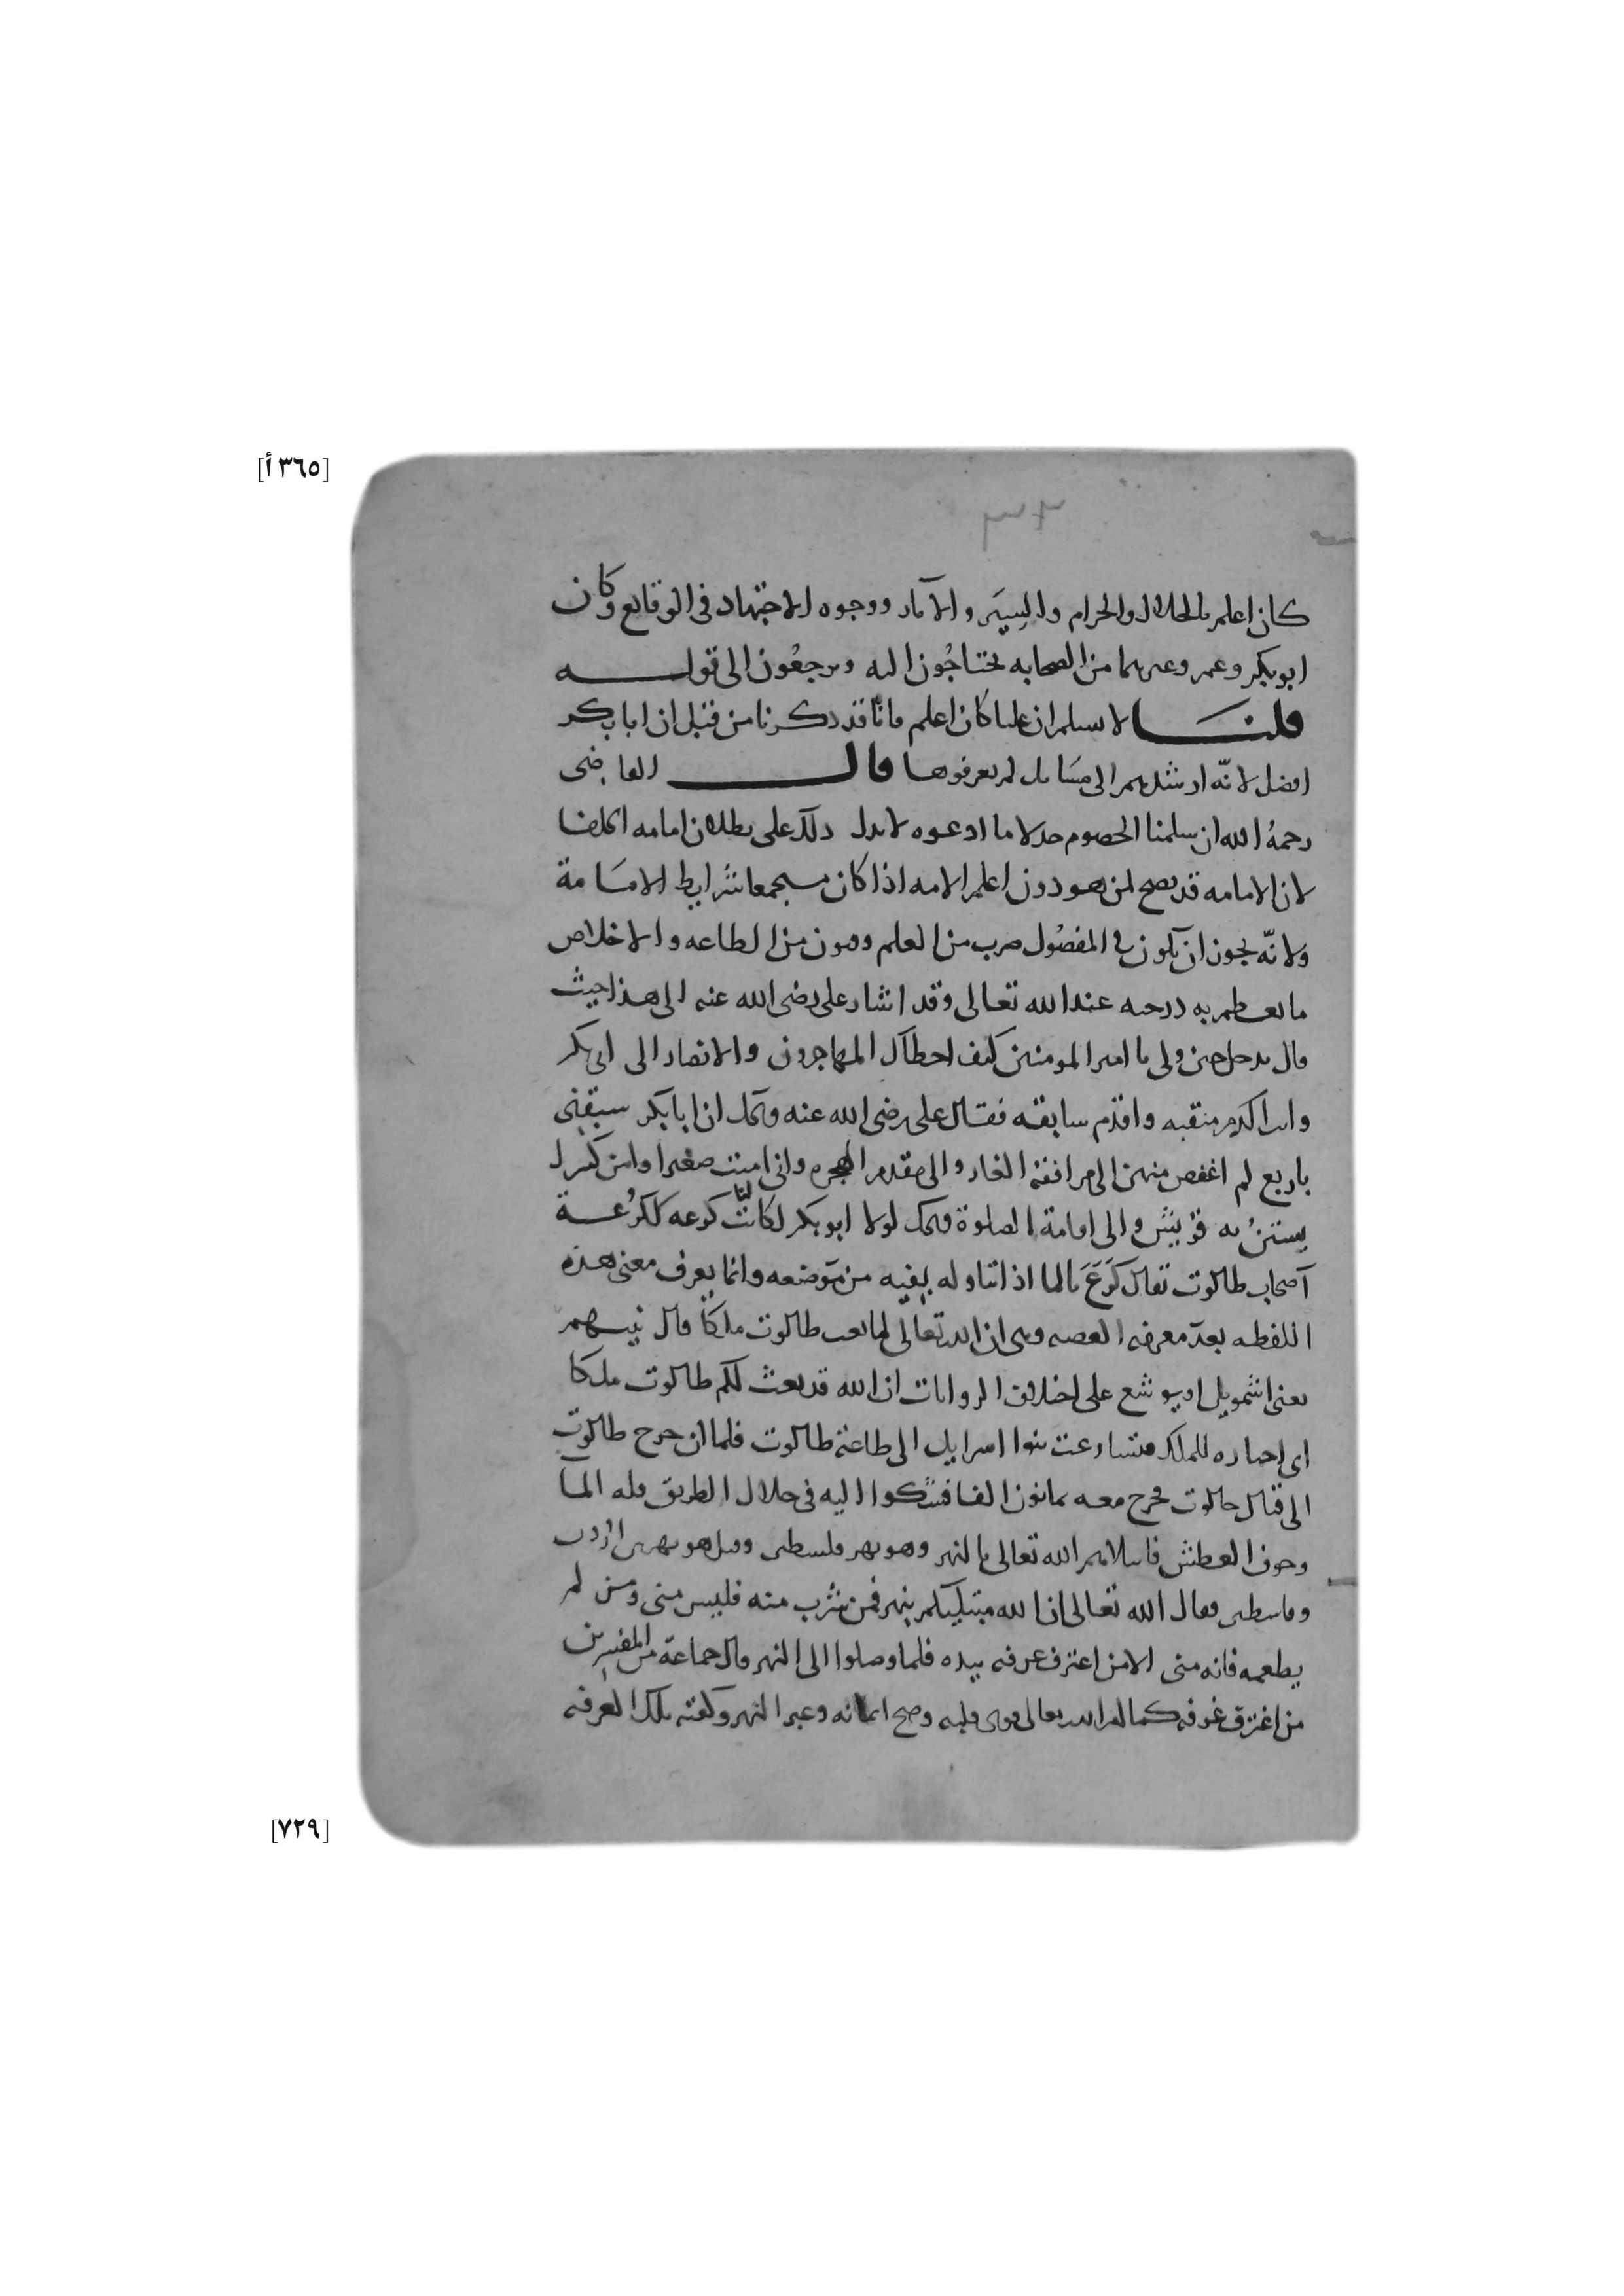 [٣٦٥أ]
كان اعلم بالحلال والحرام والسِيَر والآثار ووجوه الاجتهاد في الوقايع وكان
ابو بكر وعمر وغيرهما من الصحابه يحتاجُون اليه ويرجعُون الى قوله
قلنا لا نسلم ان عليا كان اعلم فانّا قد ذكرنا من قبل ان ابا بكر
افضل لانّه ارشدهم الى مسَايل لم يعرفوها قال القاضى
رحمهُ الله ان سلمنا الخصوم جدلا ما ادعوه لا يدل ذلك على بطلان امامه الخلفا
لان الامامه قد يصح لمن هو دون اعلم الامه اذا كان مستجمعا شرايط الامَامة
ولانّه يجوز ان يكون في المفضُول ضرب من العلم وفنون من الطاعه والاخلاص
ما يعظم به درجته عند الله تعالى وقد اشار على رضى الله عنه الى هذا حيث
قال يا امير المومنين كيف المهاجرون والانصار الى ابى بكر
وانت اكرم منقبه واقدم سابقه فقال على رضى الله عنه ويحك ان ابا بكر سبقنى
باربع لم منهن الى مرافقة الغار والى مقدم الهجره وانى امنت صغيرا وامن كبيرا
يستنُ به قريش والى اقامة الصلوة ويحك لولا ابو بكر لكانت كرعه ككرُعة
آصحاب طالوت تقال كَرَعَ بالما اذا تناوله بفيه من موضعه وانما يعرف معنى هذه
اللفظه بعد معرفه القصه وهى ان الله تعالى لما بعث طالوت ملكا قال نبيهم
يعنى اشمويل او يوشع على اختلاف الروايات ان الله قد بعث لكم طالوت ملكا
اى اختاره للملك فتسارعت بنوا اسرايل الى طاعة طالوت فلما ان خرج طالوت
الى قتال جالوت فخرج معه ثمانون الفا فشكوا اليه فى خلال الطريق قله المآ
وخوف العطش فابتلاهم الله تعالى بالنهر وهو نهر فلسطين وقيل هو نهر بين الاردن
وفلسطين فقال الله تعالى ان الله مبتليكم بنهر فمن شرب منه فليس منى ومن لم
يطعمه فانه منى الا من اغترف غرفه بيده فلما وصلوا الى النهر قال جماعة من المفسرين
من اغترف غرفه كما امر الله تعالى قوى قلبه وصح ايمانه وعبر النهر وكفته تلك الغرفه
[٧٢٩]